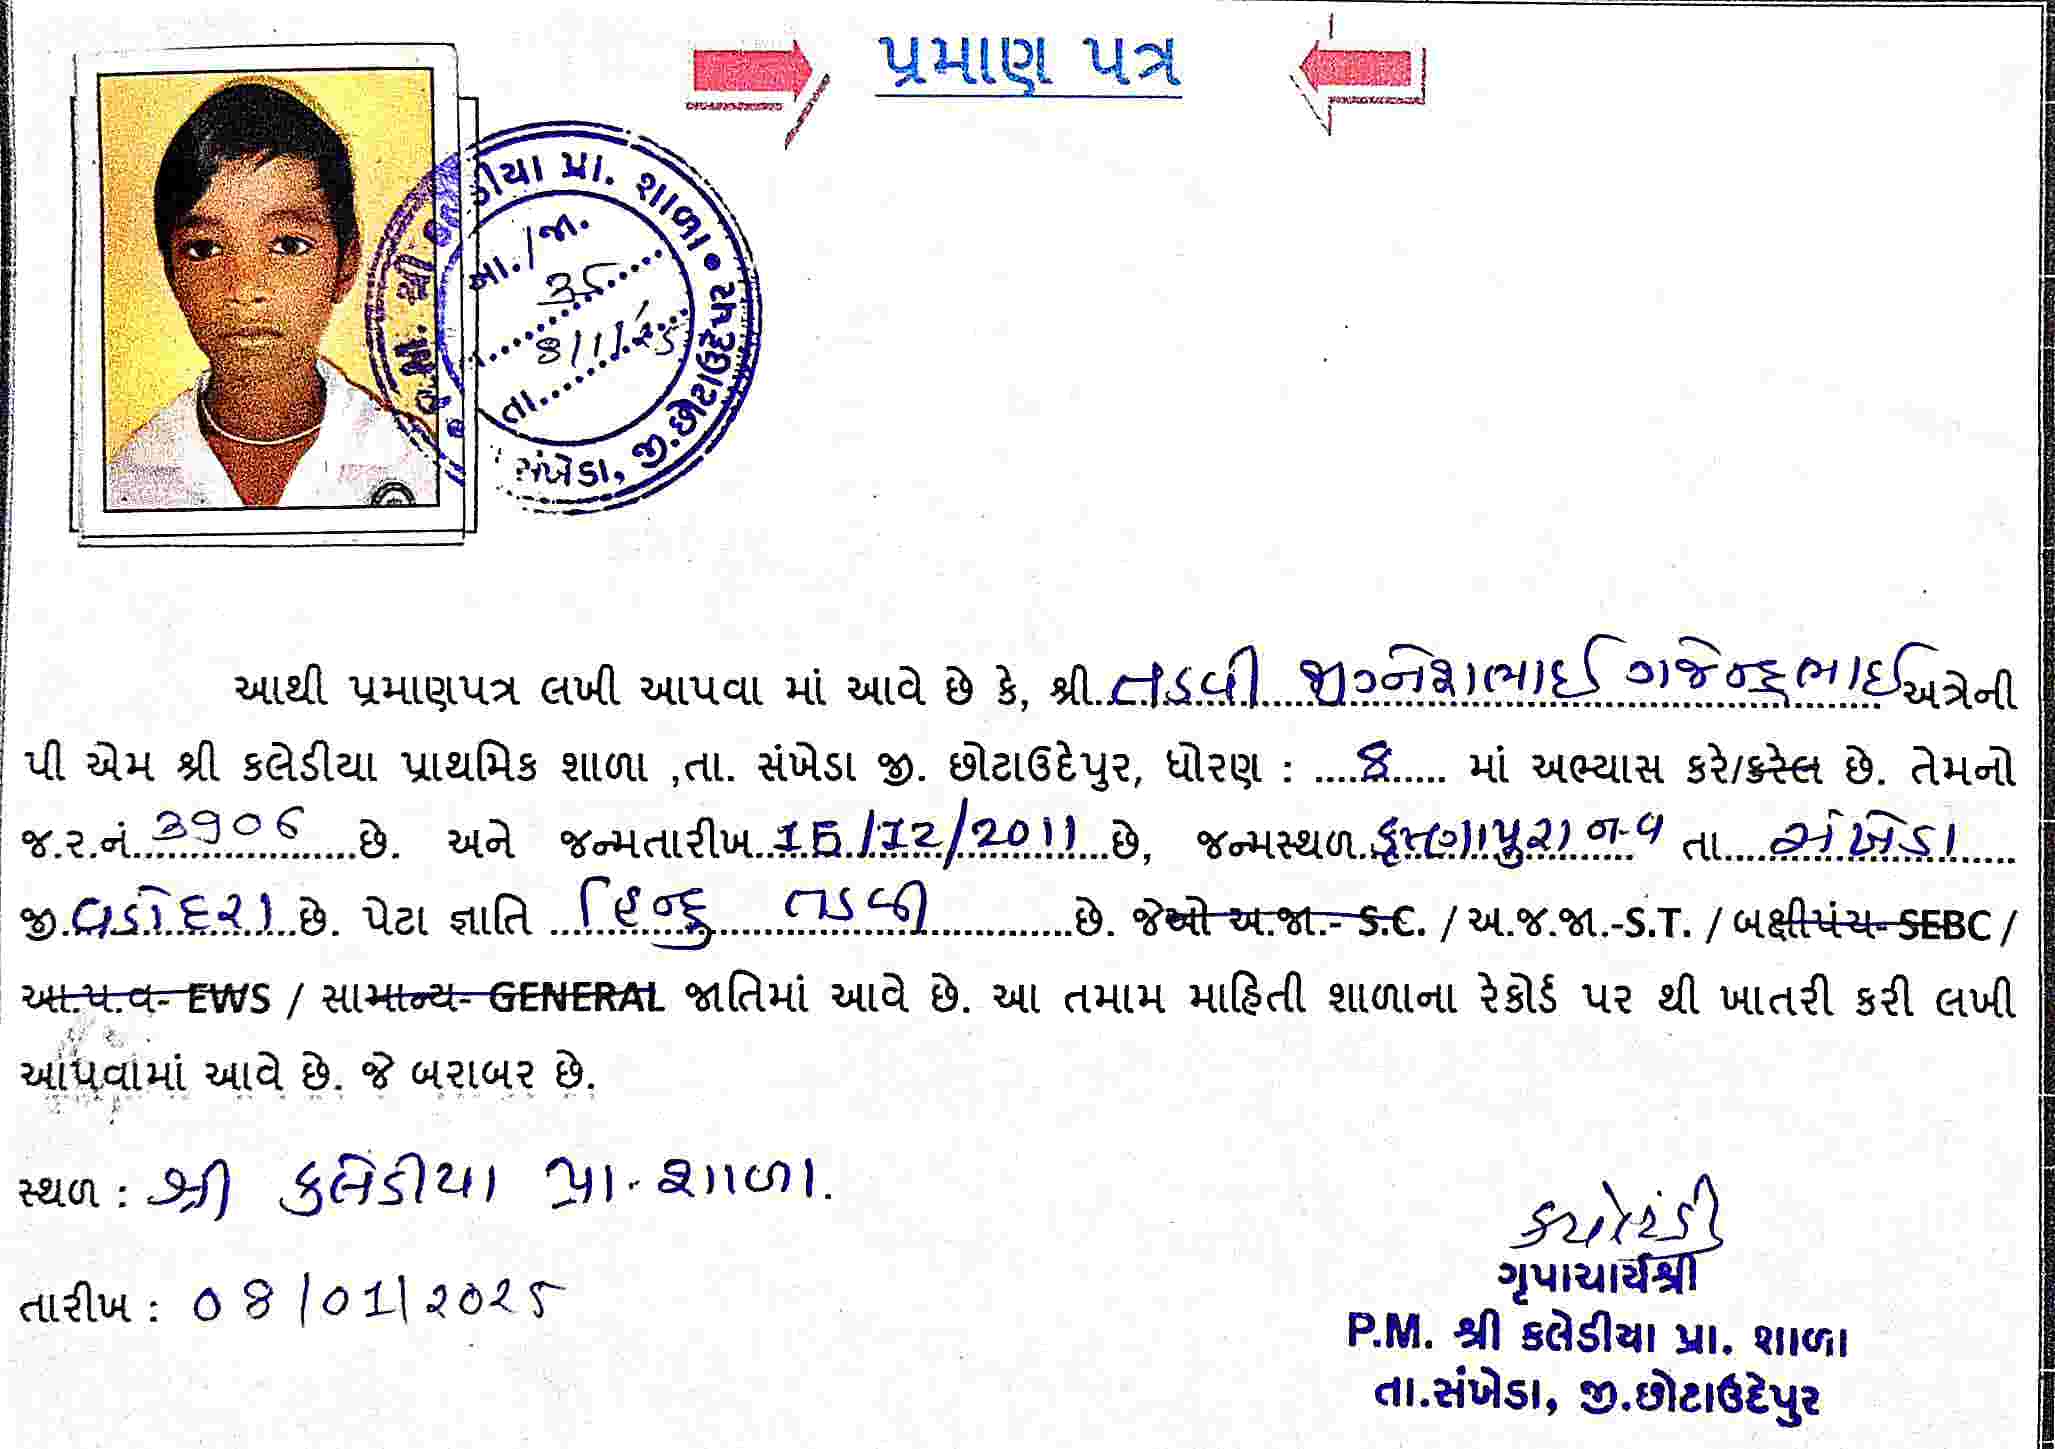 પ્રમાણ પત્ર
પ્રા. શાળા • સંખેડા, જી.છોટાઉદેપુર
આ./જા.
35
તા. 8/1/25
આથી પ્રમાણપત્ર લખી આપવા માં આવે છે કે, શ્રી તડવી જીગ્નેશભાઈ ગજેન્દ્રભાઈ અત્રેની
પી એમ શ્રી કલેડીયા પ્રાથમિક શાળા ,તા. સંખેડા જી. છોટાઉદેપુર, ધોરણ : ....8..... માં અભ્યાસ કરે/કરેલ છે. તેમનો
જ.ર.નં. 3906 છે. અને જન્મતારીખ 15/12/2011 છે, જન્મસ્થળ તા. સંખેડા
જી. વડોદરા છે. પેટા જ્ઞાતિ હિન્દુ તડવી છે. જેઓ અ.જા.- S.C. / અ.જ.જા.-S.T. / બક્ષીપંચ- SEBC /
આ.પ.વ- EWS / સામાન્ય- GENERAL જાતિમાં આવે છે. આ તમામ માહિતી શાળાના રેકોર્ડ પર થી ખાતરી કરી લખી
આપવામાં આવે છે. જે બરાબર છે.
સ્થળ : શ્રી કલેડીયા પ્રા. શાળા.
તારીખ : 08/01/2025
ગૃપાચાર્યશ્રી
P.M. શ્રી કલેડીયા પ્રા. શાળા
તા.સંખેડા, જી.છોટાઉદેપુર